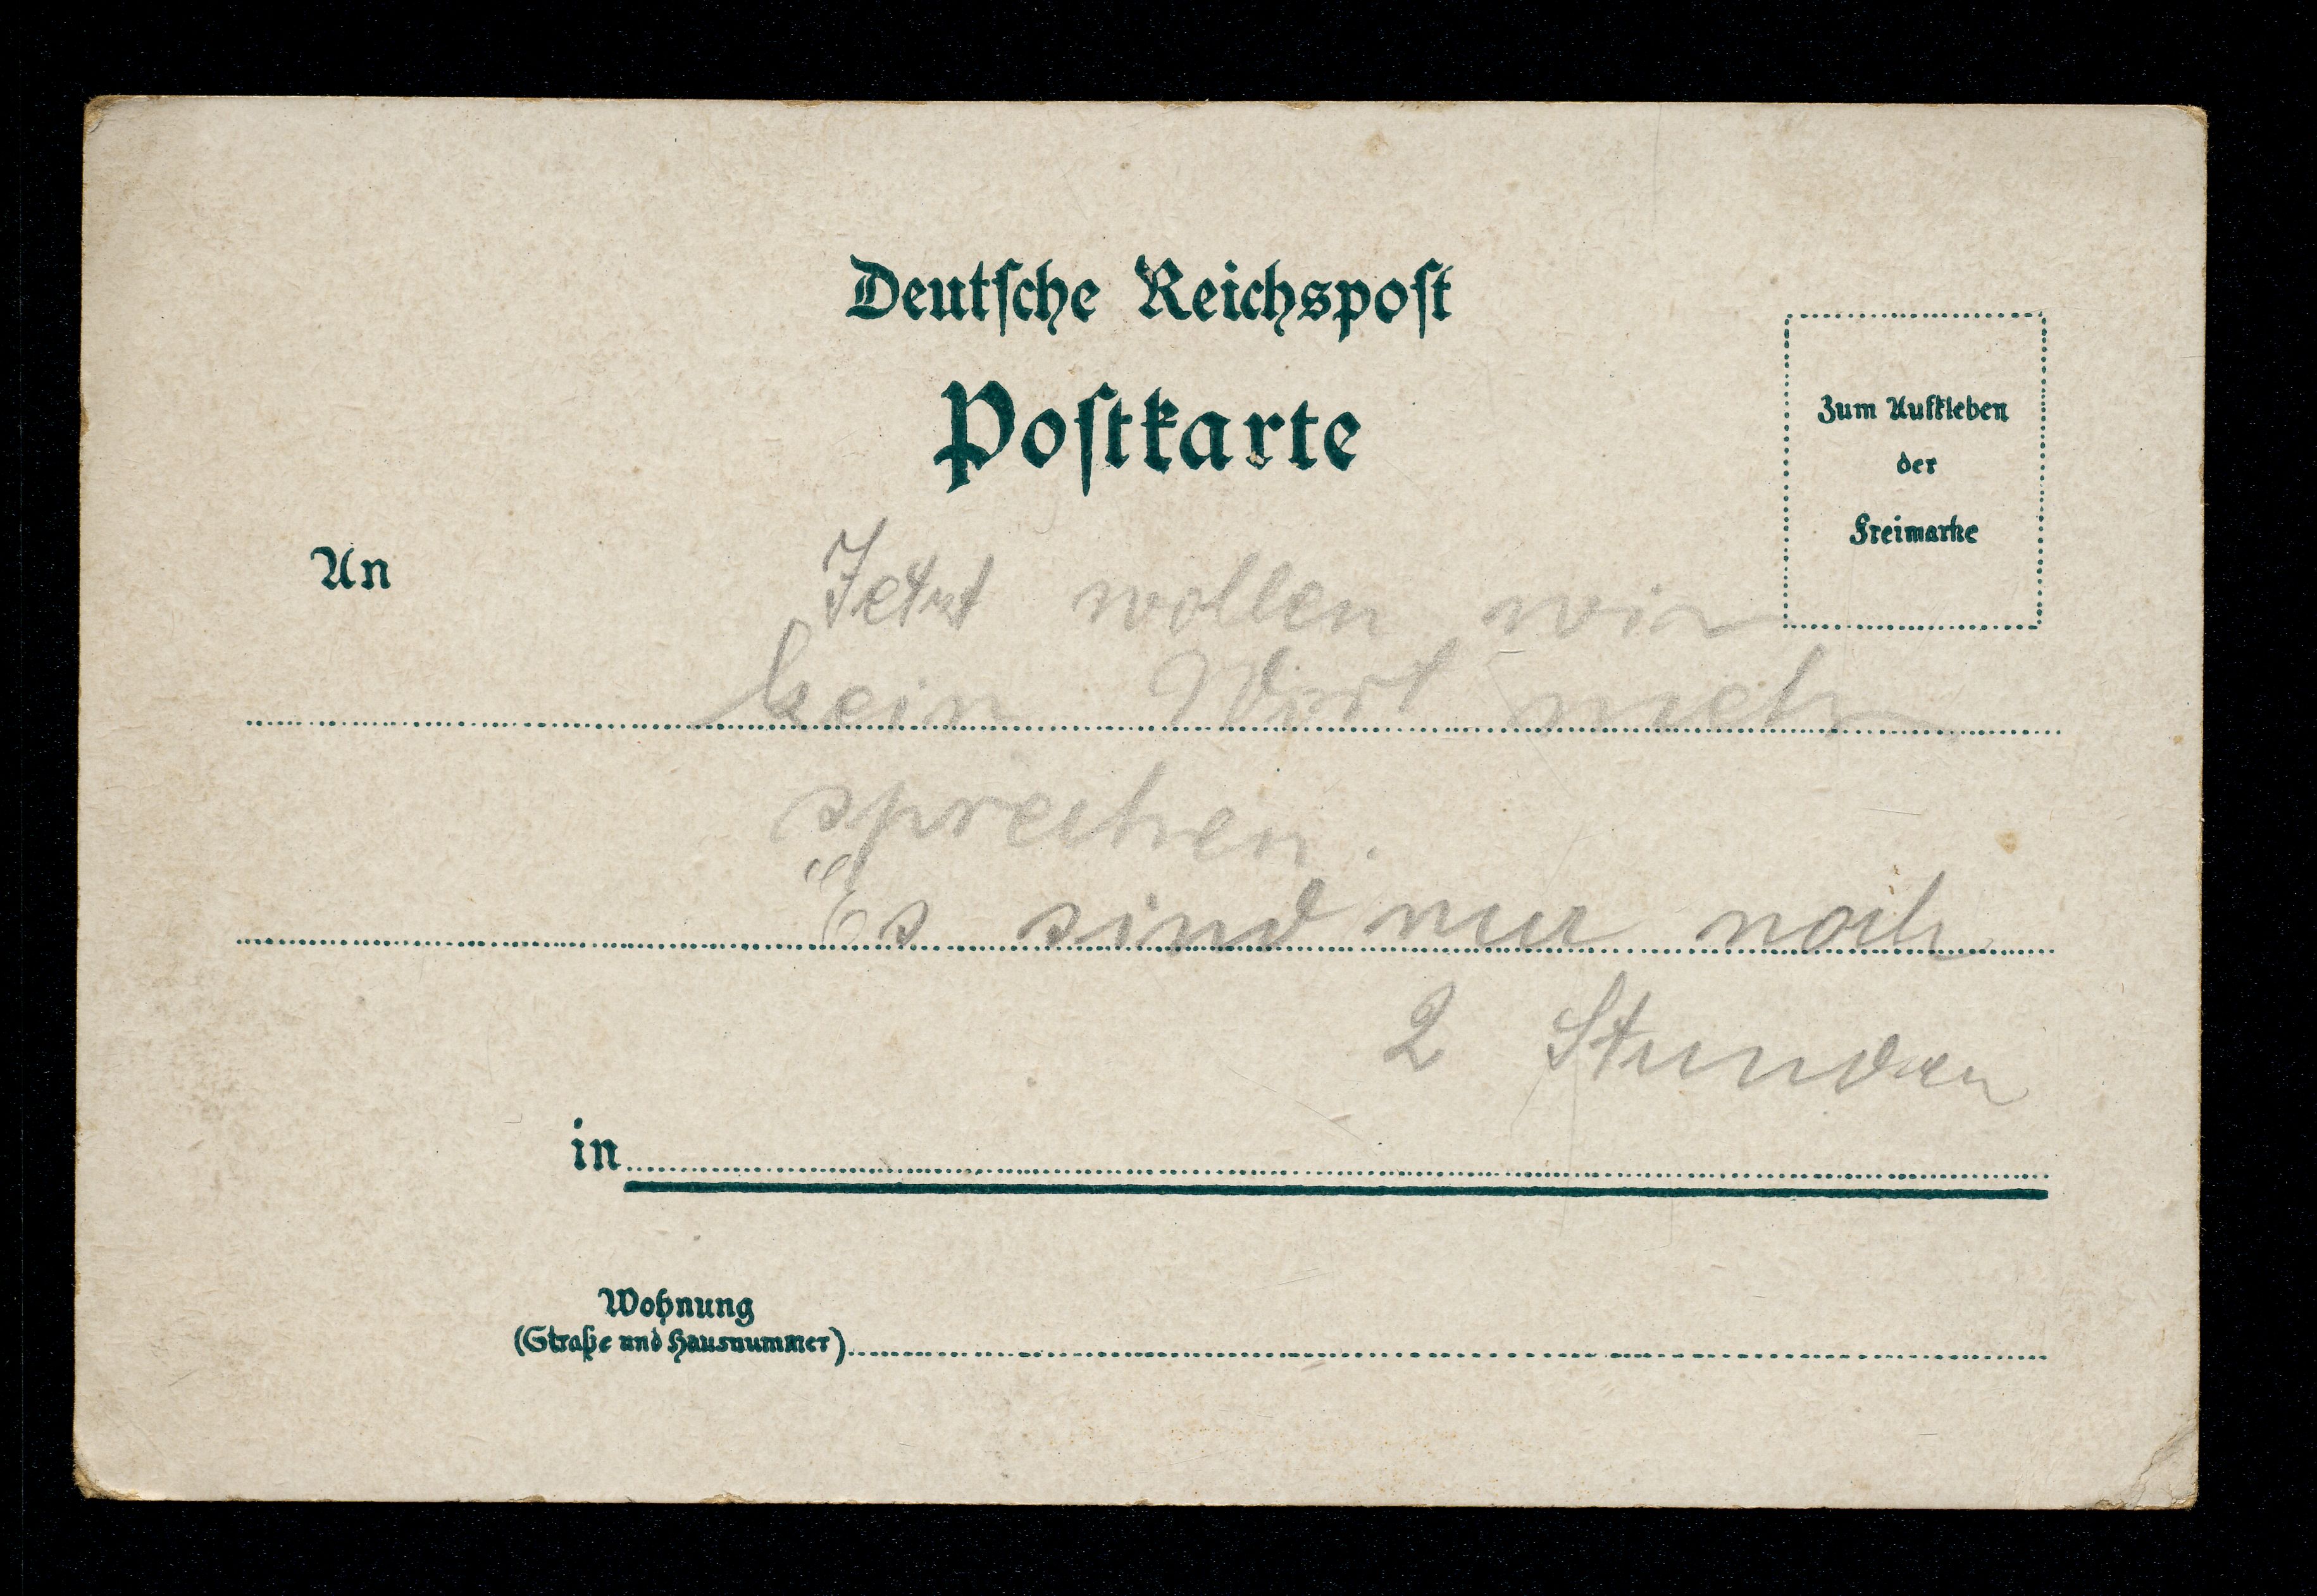 Deutsche Reichspost
Postkarte
Zum Aufkleben
der
Freimarke
An
Jetzt wollen wir
kein Wort mehr
sprechen.
Es sind nur noch
2 Stunden
in
Wohnung
(Straße und Hausnummer)